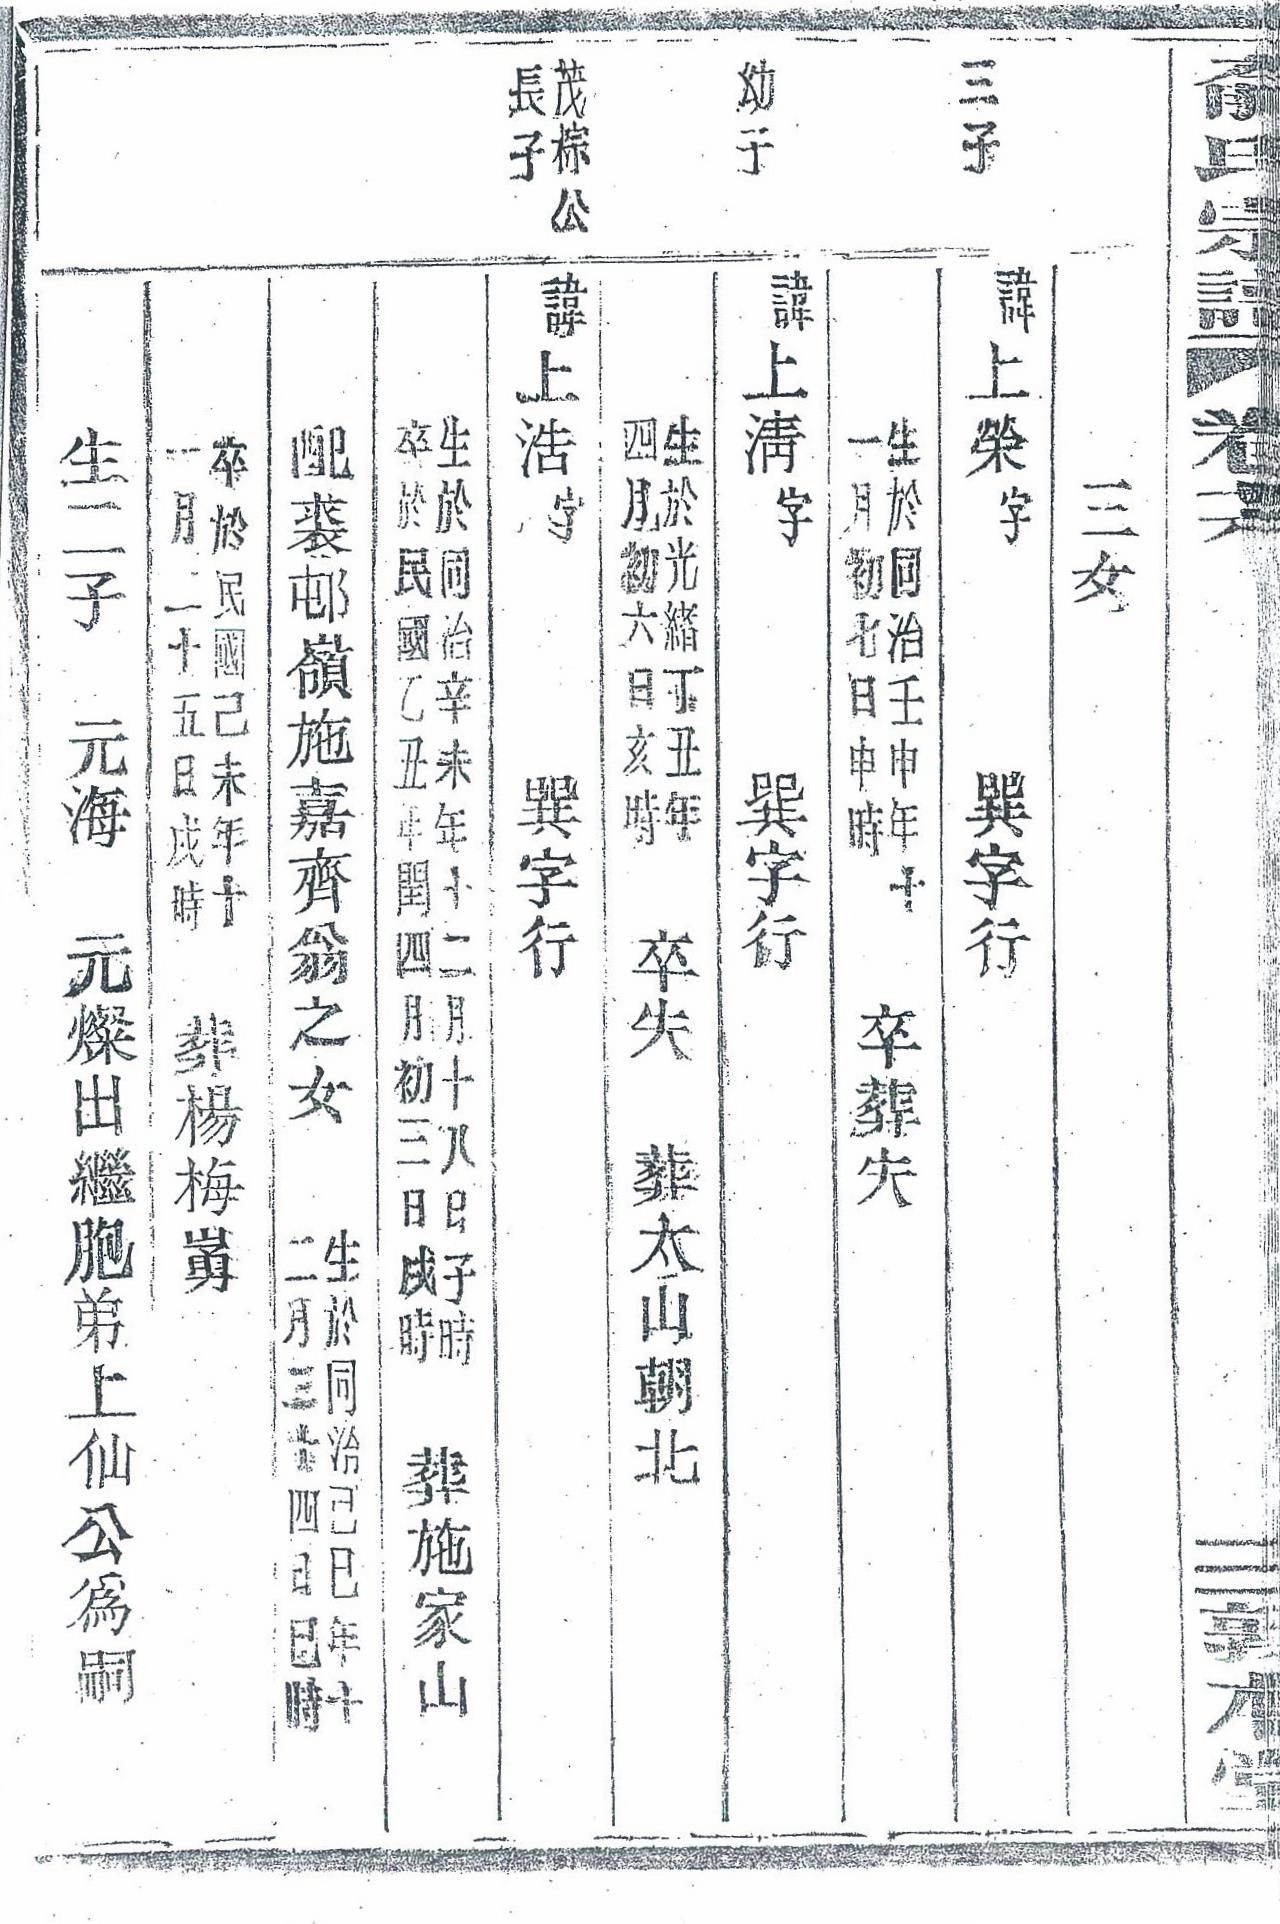 氏宗譜 卷六 敦本堂
三女
三子
諱上榮字 巽字行
生於同治壬申年十
一月初七日申時
卒葬失
幼子
諱上清字 巽字行
生於光緒丁丑年
四月初六日亥時
卒失 葬太山朝北
茂棕公
長子
諱上浩字 巽字行
生於同治辛未年十二月十八日子時
卒於民國乙丑年閏四月初三日戌時
葬施家山
配裘邨嶺施嘉齊翁之女
生於同治己巳年十
二月二十四日巳時
卒於民國己未年十
一月二十五日戌時
葬楊梅
生二子 元海 元燦出繼胞弟上仙公爲嗣